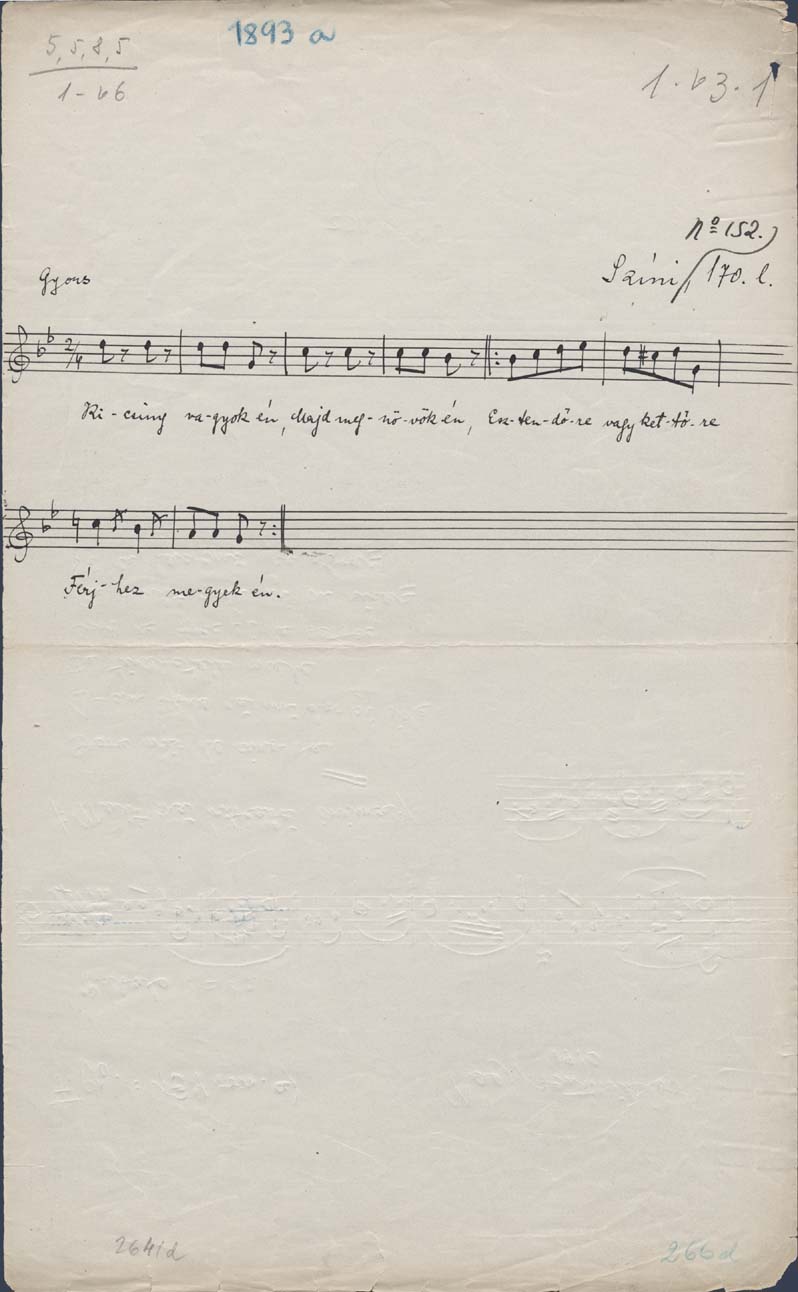 1893 a
5, 5, 8, 5
1 - b6
1 - b3 - 1
No 152.)
Gyors
Színi 170. l.
2/4
Ki - csiny va - gyok én, Majd meg - nö - vök én, Esz - ten - dő - re vagy ket - tő - re
Férj - hez me - gyek én.
2641d
266d